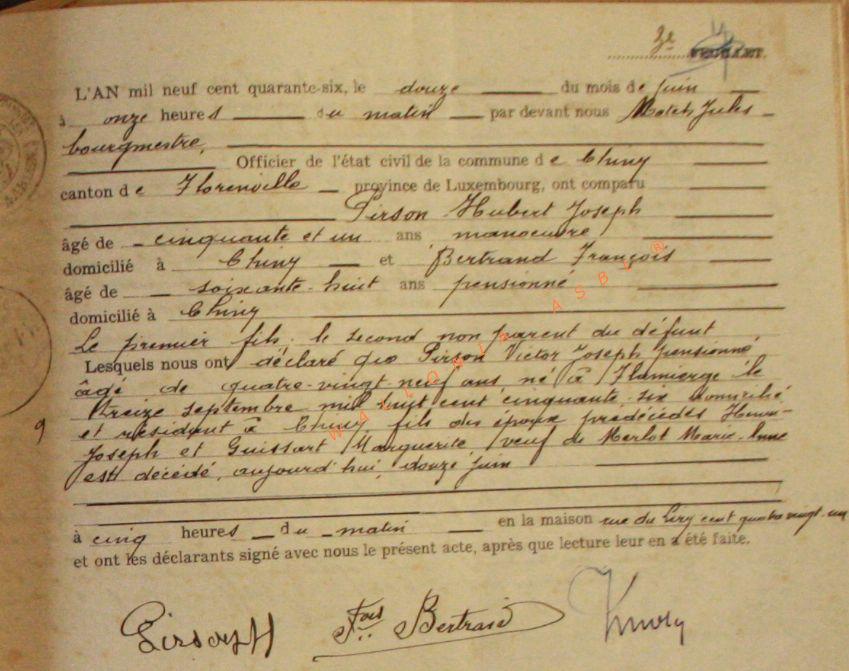 2e FEUILLET.
L'AN mil neuf cent quarante-six, le douze du mois de juin
à onze heures du matin par devant nous Jules
bourgmestre,
Officier de l'état civil de la commune de Chiny
canton de Florenville province de Luxembourg, ont comparu
Pirson Hubert Joseph
âgé de cinquante et un ans manoeuvre
domicilié à Chiny et Bertrand François
âgé de soixante-huit ans pensionné
domicilié à Chiny
Le premier fils, le second non parent du défunt
Lesquels nous ont déclaré que Pirson Victor Joseph pensionné
âgé de quatre-vingt neuf ans, né à Flamierge le
treize septembre mil huit cent cinquante-six domicilié
et résidant à Chiny fils des époux prédécédés Henri-
Joseph et Guissart Marguerite, veuf de Merlot Marie-Anne
est décédé, aujourd'hui, douze juin
à cinq heures du matin en la maison rue du cent quatre vingt-un
et ont les déclarants signé avec nous le présent acte, après que lecture leur en a été faite.
Pirson H Fois Bertrand
WALLONIA ASBL